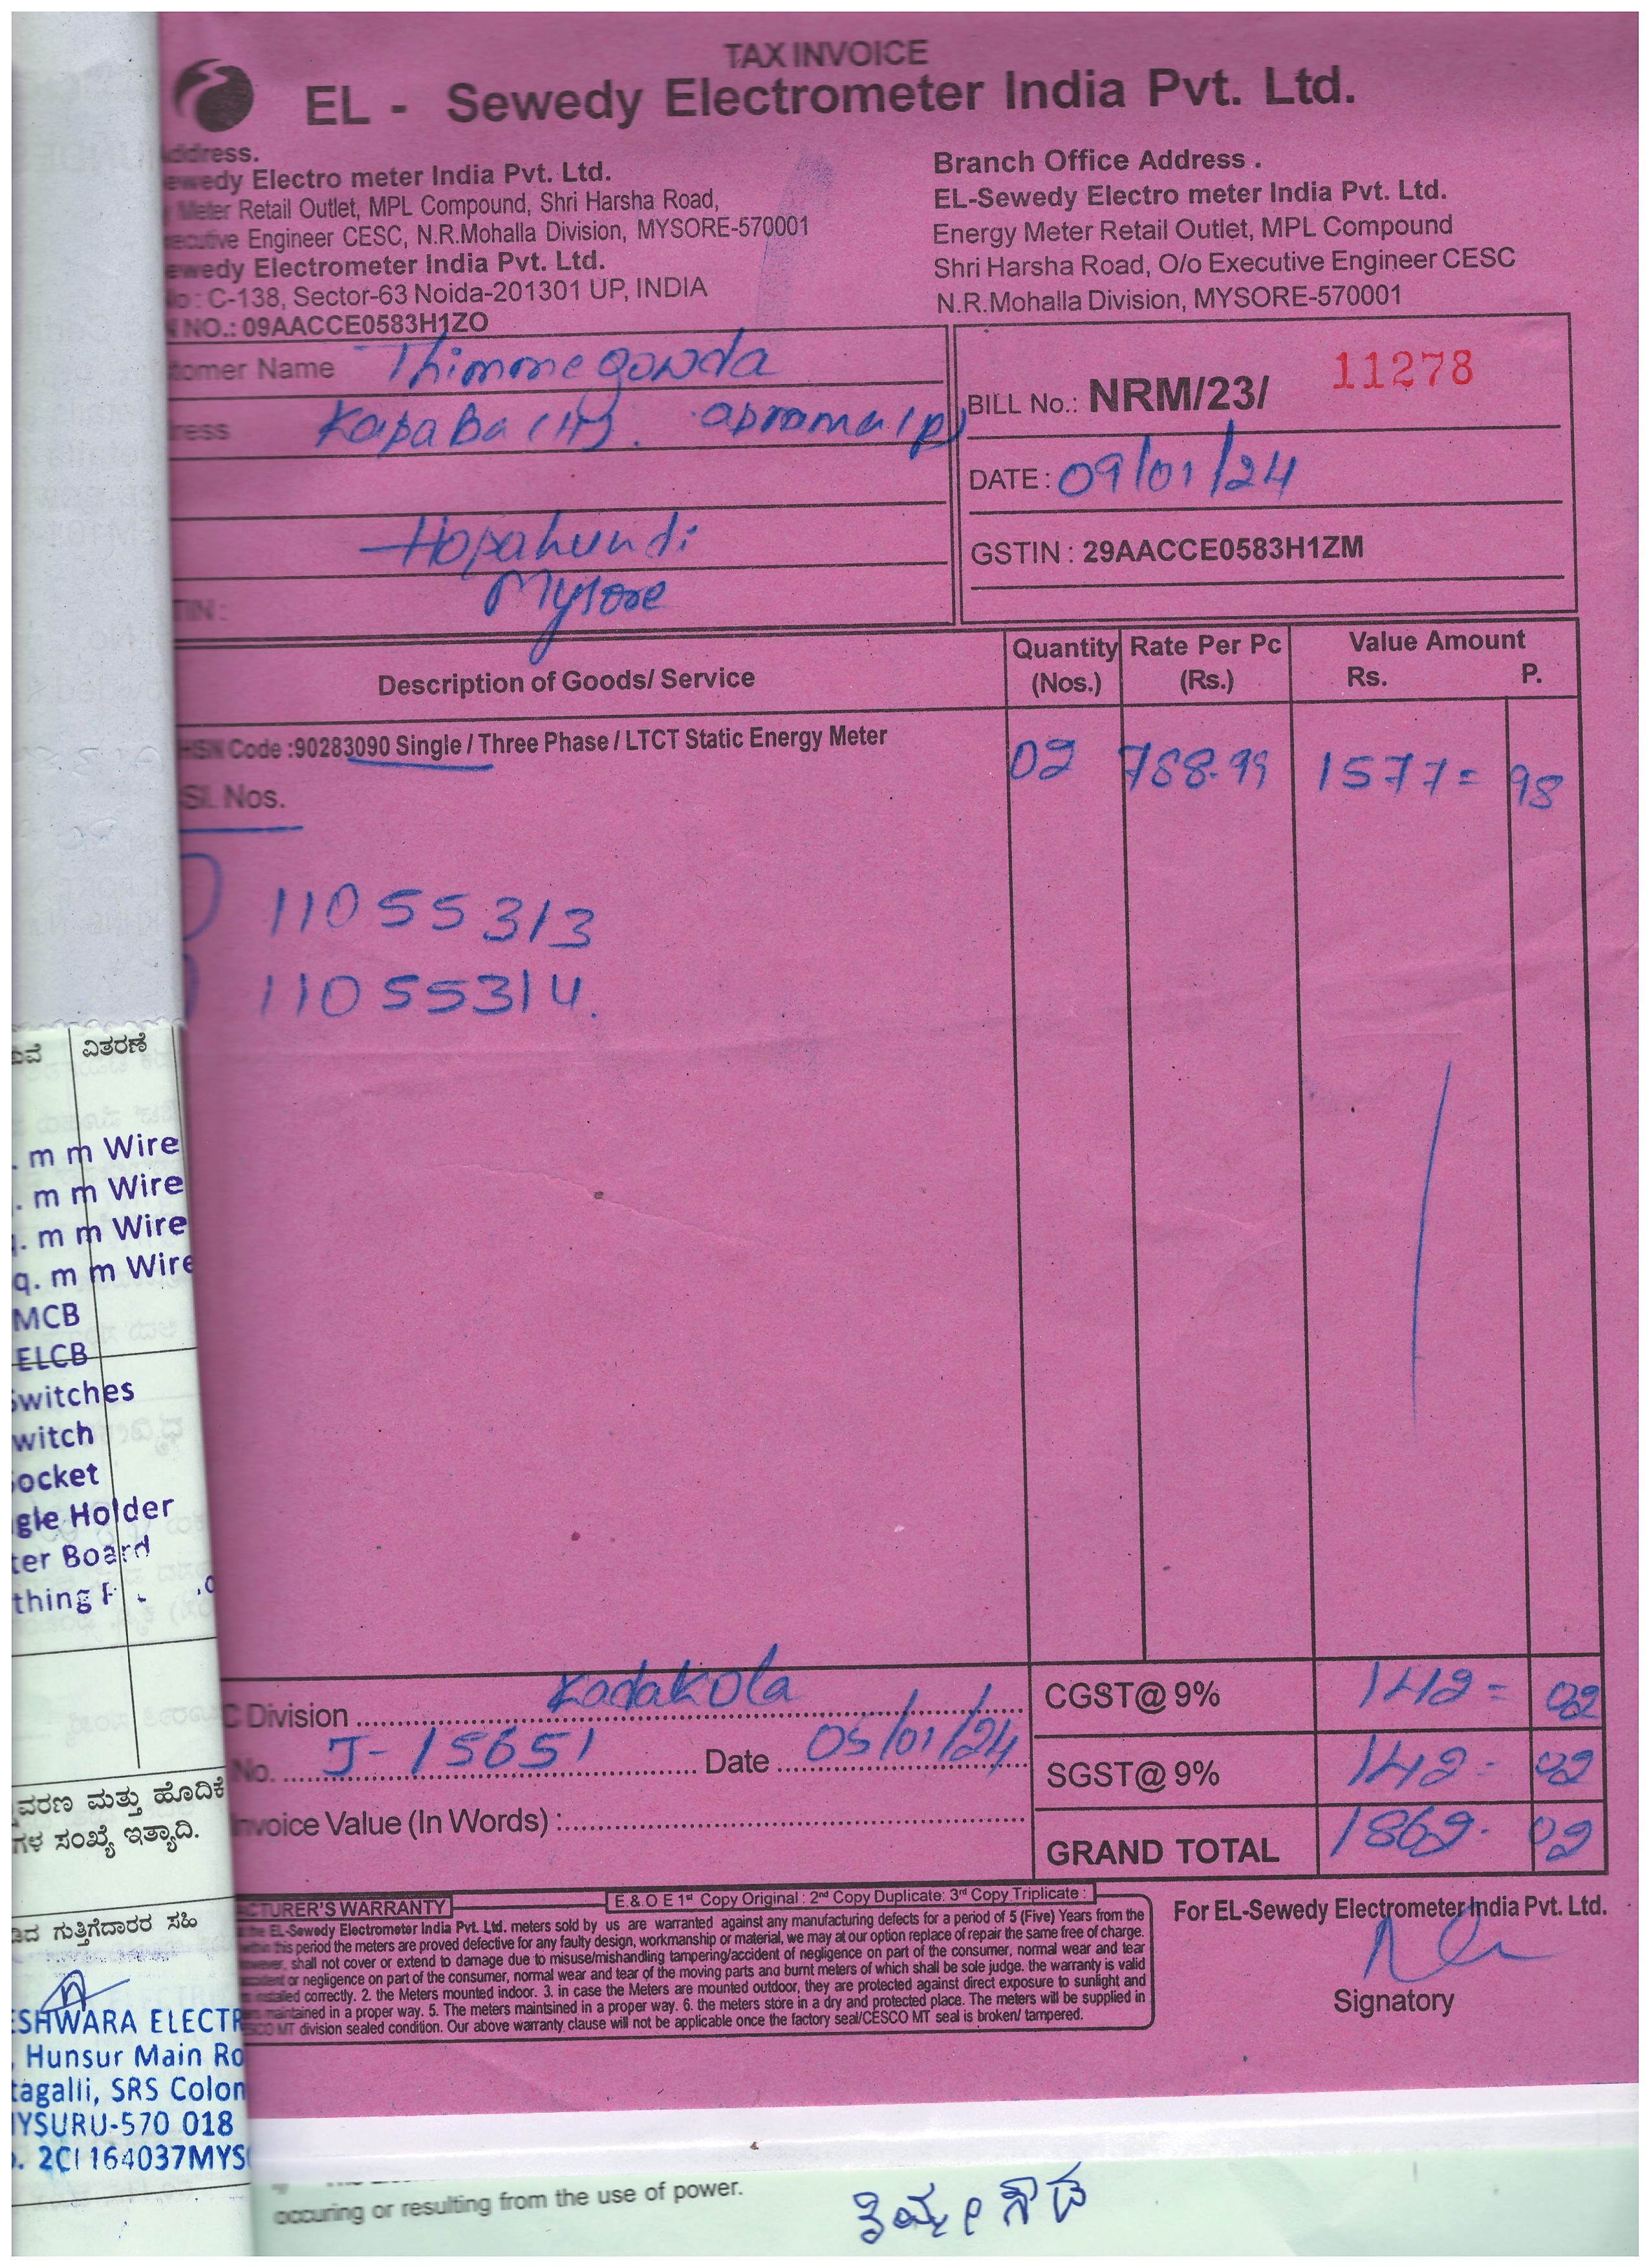 TAX INVOICE
EL - Sewedy Electrometer India Pvt. Ltd.
ddress.
ewedy Electro meter India Pvt. Ltd.
Meter Retail Outlet, MPL Compound, Shri Harsha Road,
ecutive Engineer CESC, N.R.Mohalla Division, MYSORE-570001
ewedy Electrometer India Pvt. Ltd.
No : C-138, Sector-63 Noida-201301 UP, INDIA
N NO.: 09AACCE0583H1ZO
Branch Office Address .
EL-Sewedy Electro meter India Pvt. Ltd.
Energy Meter Retail Outlet, MPL Compound
Shri Harsha Road, O/o Executive Engineer CESC
N.R.Mohalla Division, MYSORE-570001
tomer Name Thimmegowda
ress
Mysore
TIN :
BILL No.: NRM/23/ 11278
DATE : 09/01/24
GSTIN : 29AACCE0583H1ZM
Description of Goods/ Service Quantity (Nos.) Rate Per Pc (Rs.) Value Amount Rs. P.
HSN Code :90283090 Single / Three Phase / LTCT Static Energy Meter 02 788.99 1577= 98
Sl. Nos.
11055313
11055314.
C Division Kadakola
No. J-15651 Date 05/01/24
Invoice Value (In Words) :
CGST@ 9% 142= 02
SGST@ 9% 142- 02
GRAND TOTAL 1862- 02
ACTURER'S WARRANTY
E.& O E 1st Copy Original : 2nd Copy Duplicate: 3rd Copy Triplicate :
the EL-Sewedy Electrometer India Pvt. Ltd. meters sold by us are warranted against any manufacturing defects for a period of 5 (Five) Years from the
within this period the meters are proved defective for any faulty design, workmanship or material, we may at our option replace of repair the same free of charge.
owever, shall not cover or extend to damage due to misuse/mishandling tampering/accident of negligence on part of the consumer, normal wear and tear
accident or negligence on part of the consumer, normal wear and tear of the moving parts and burnt meters of which shall be sole judge. the warranty is valid
installed correctly. 2. the Meters mounted indoor. 3. in case the Meters are mounted outdoor, they are protected against direct exposure to sunlight and
maintained in a proper way. 5. The meters maintsined in a proper way. 6. the meters store in a dry and protected place. The meters will be supplied in
SCO MT division sealed condition. Our above warranty clause will not be applicable once the factory seal/CESCO MT seal is broken/ tampered.
For EL-Sewedy Electrometer India Pvt. Ltd.
Signatory
ವಿತರಣೆ
. m m Wire
. m m Wire
. m m Wire
q. m m Wire
MCB
ELCB
Switches
witch
ocket
gle Holder
ter Board
thing
ವರಣ ಮತ್ತು ಹೊದಿಕೆ
ಗಳ ಸಂಖ್ಯೆ ಇತ್ಯಾದಿ.
ಡಿದ ಗುತ್ತಿಗೆದಾರರ ಸಹಿ
ESHWARA ELECTR
, Hunsur Main Ro
tagalli, SRS Colon
MYSURU-570 018
. 2CI 164037MYS
occuring or resulting from the use of power.
ತಿಮ್ಮೇಗೌಡ